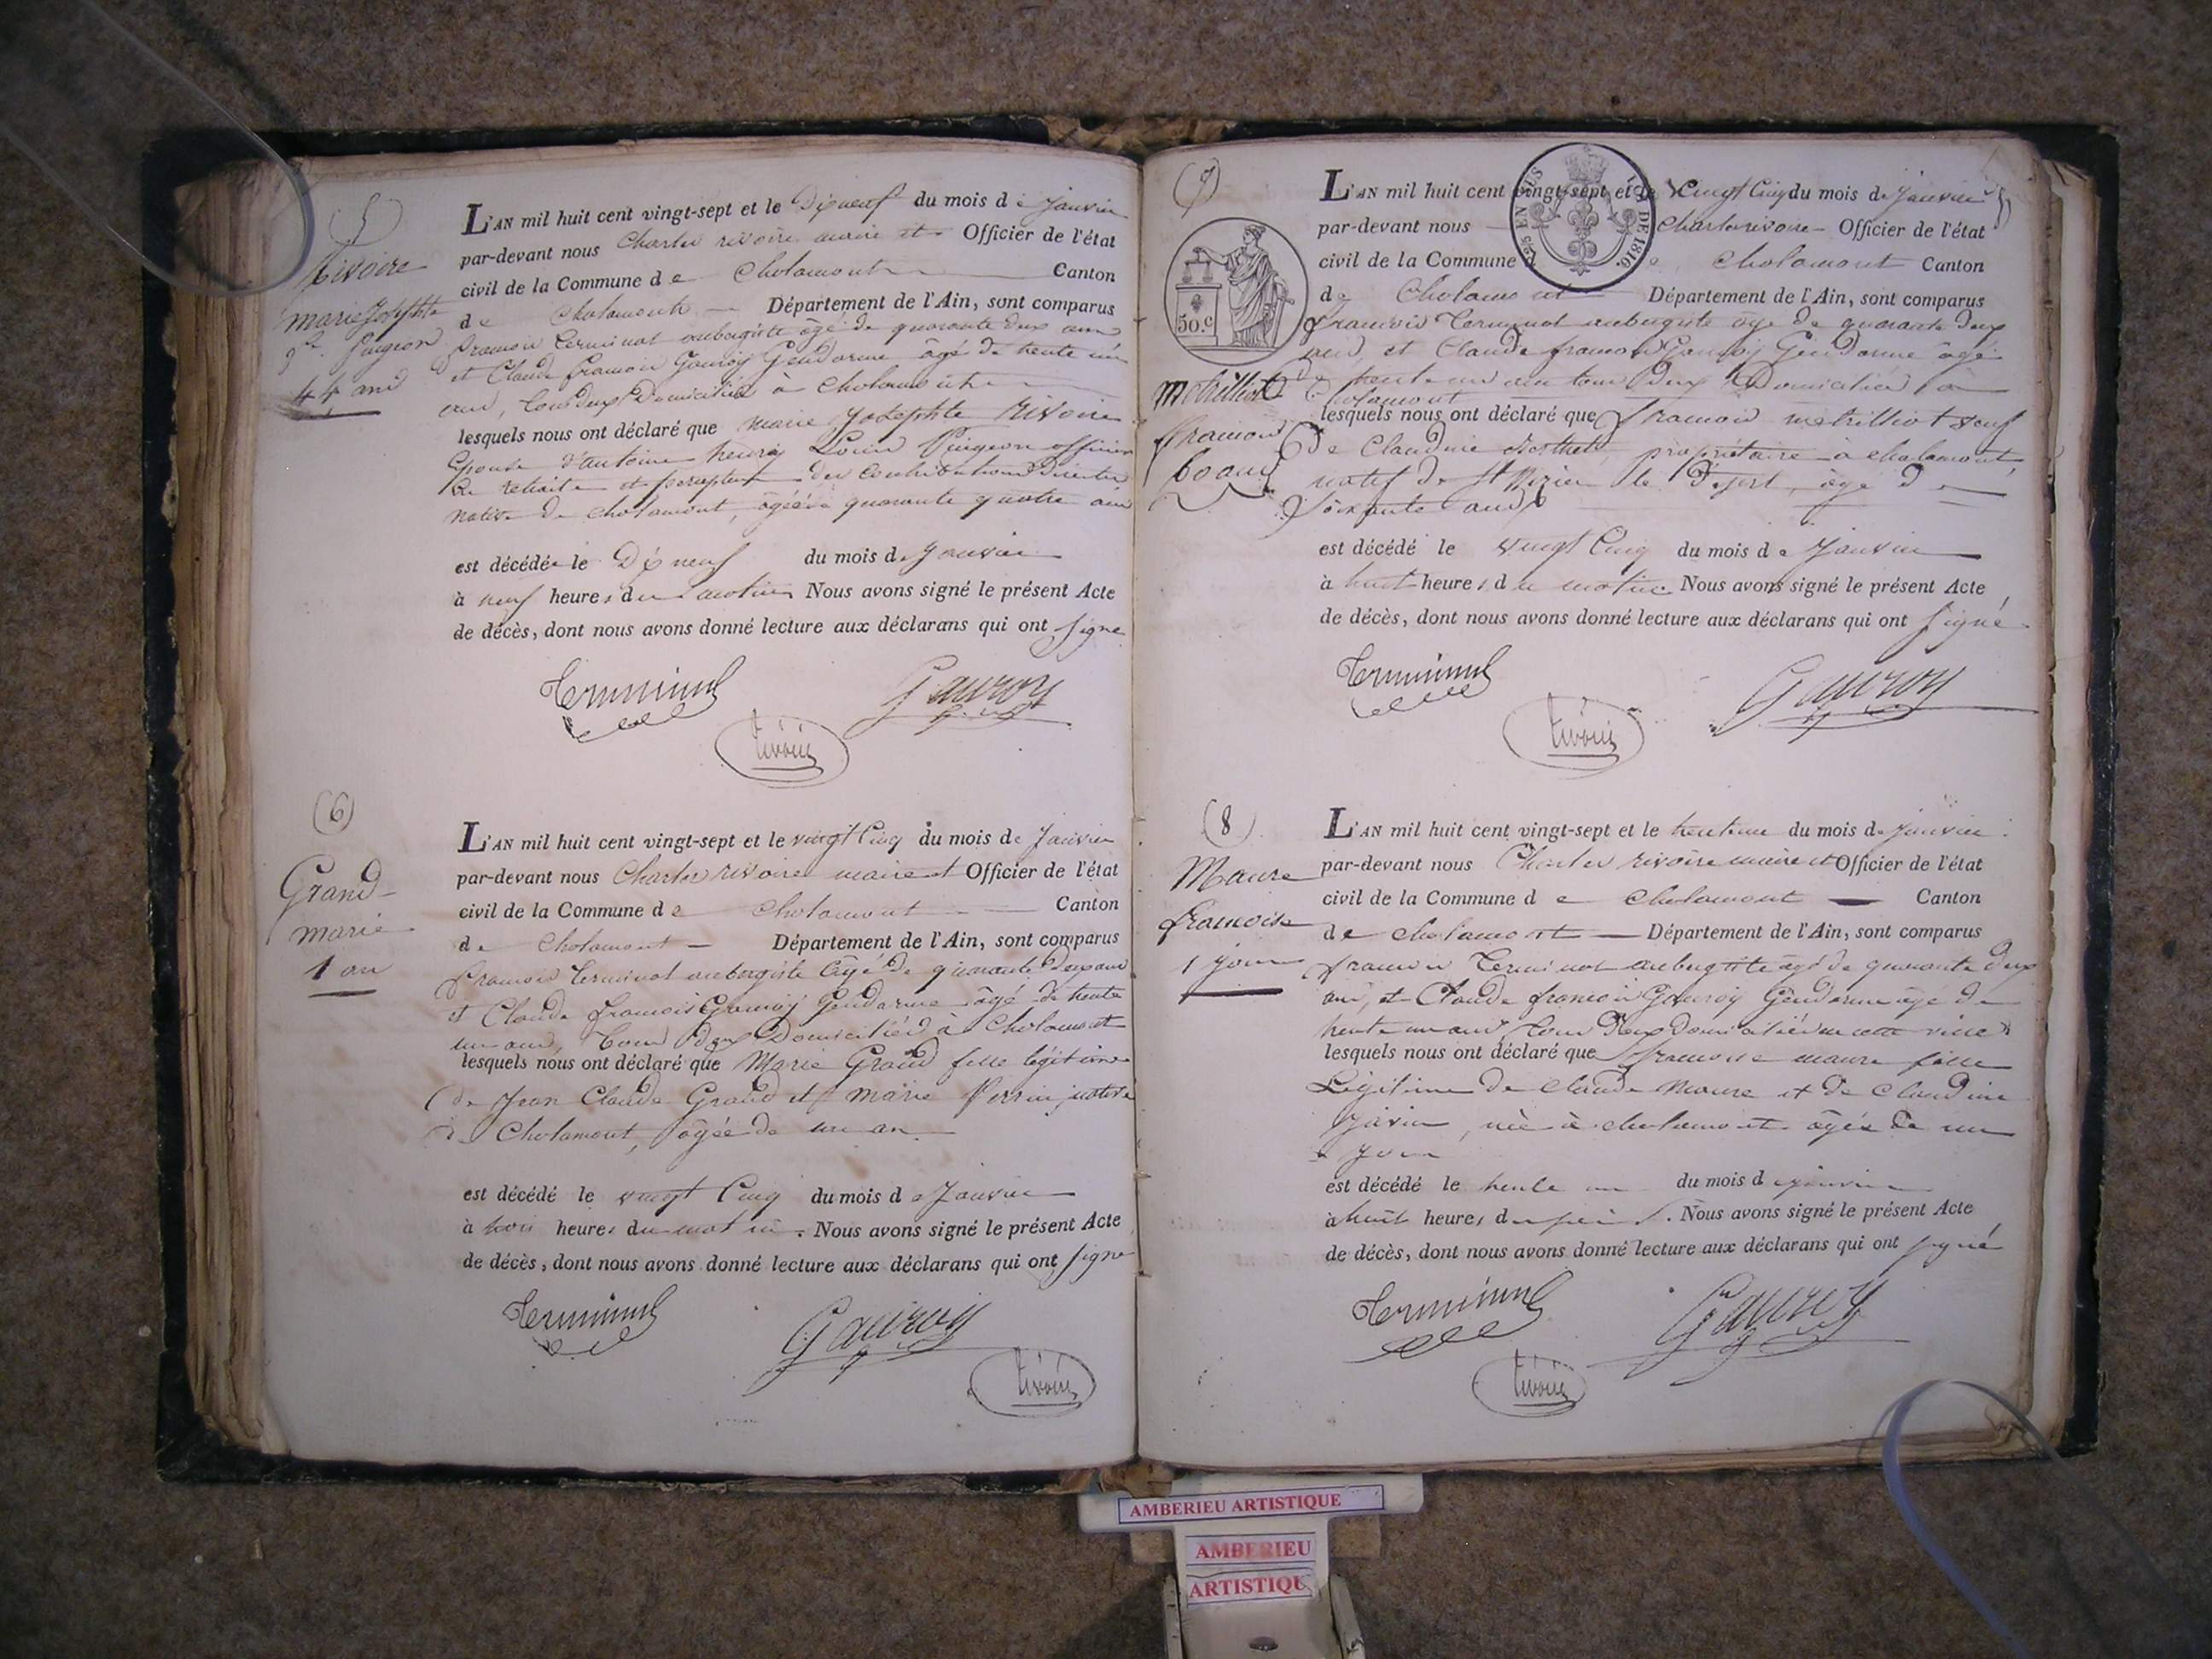 5
Rivoire
marie Josephte
fe. Puigeon
44 ans
L'AN mil huit cent vingt-sept et le Dixneuf du mois de Janvier
par-devant nous Charles rivoire maire et Officier de l'état
civil de la Commune de Chalamont Canton
de Chalamont Département de l'Ain, sont comparus
francois Terminal aubergiste âgé de quarante deux ans
et Claude francois Gauroy Gendarme âgé de trente un
ans, tous deux Domiciliés à Chalamont
lesquels nous ont déclaré que marie Josephte Rivoire
Epouse d'antoine henry Louis Puigeon officier
en retraite et percepteur des Contributions Directes
native de chalamont, âgée de quarante quatre ans
est décédée le Dixneuf du mois de Janvier
à neuf heures du matin Nous avons signé le présent Acte
de décès, dont nous avons donné lecture aux déclarans qui ont signé
Terminal Gauroy
rivoire
(6)
Grand
marie
1 an
L'AN mil huit cent vingt-sept et le vingt Cinq du mois de Janvier
par-devant nous Charles rivoire maire et Officier de l'état
civil de la Commune de Chalamont Canton
de Chalamont Département de l'Ain, sont comparus
francois Terminal aubergiste âgé de quarante deux ans
et Claude francois Gauroy Gendarme âgé de trente
un ans, tous deux Domiciliés à Chalamont
lesquels nous ont déclaré que Marie Grand fille légitime
de Jean Claude Grand et marie Perrin, native
de Chalamont, âgée de un an
est décédé le vingt Cinq du mois de Janvier
à trois heures du matin. Nous avons signé le présent Acte
de décès, dont nous avons donné lecture aux déclarans qui ont signé
Terminal Gauroy
rivoire
(7)
50.c
EN SUS
DE 1816.
metrilliot
francois
60 ans
L'AN mil huit cent vingt-sept et le vingt Cinq du mois de Janvier
par-devant nous Charles rivoire Officier de l'état
civil de la Commune de Chalamont Canton
de Chalamont Département de l'Ain, sont comparus
francois Terminal aubergiste âgé de quarante deux
ans, et Claude francois Gauroy Gendarme âgé
de trente un ans tous deux Domiciliés à
Chalamont
lesquels nous ont déclaré que francois metrilliot veuf
de Claudine Berthet, propriétaire à chalamont,
natif de St Nizier le Désert, âgé de
soixante ans
est décédé le vingt Cinq du mois de Janvier
à huit heures du matin. Nous avons signé le présent Acte
de décès, dont nous avons donné lecture aux déclarans qui ont signé
Terminal Gauroy
rivoire
(8)
Maure
francoise
1 jour
L'AN mil huit cent vingt-sept et le trente un du mois de Janvier
par-devant nous Charles rivoire maire et Officier de l'état
civil de la Commune de Chalamont Canton
de chalamont Département de l'Ain, sont comparus
francois Terminal aubergiste âgé de quarante deux
ans, et Claude francois Gauroy Gendarme âgé de
trente un ans, tous deux domiciliés en cette ville
lesquels nous ont déclaré que francoise maure fille
Légitime de claude Maure et de Claudine
Javin, née à chalamont âgée de un
jour
est décédé le trente un du mois de janvier
à huit heures du soir. Nous avons signé le présent Acte
de décès, dont nous avons donné lecture aux déclarans qui ont signé
Terminal Gauroy
rivoire
AMBERIEU ARTISTIQUE
AMBERIEU
ARTISTIQU